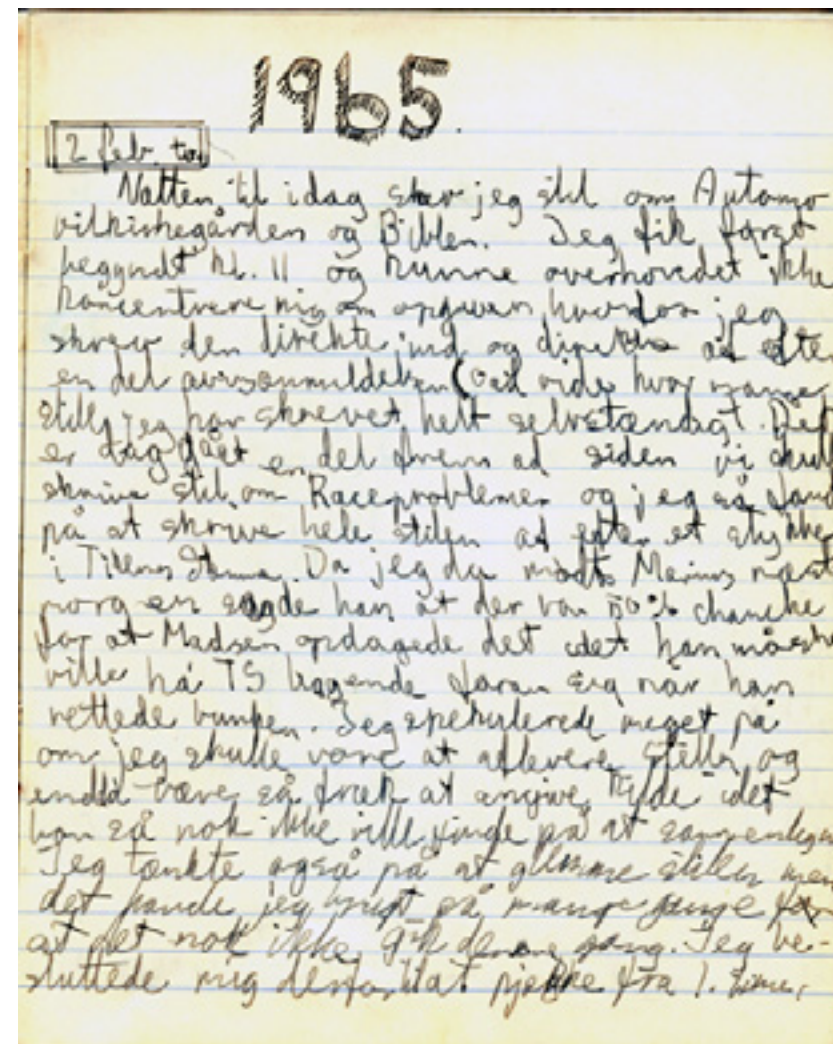 1965.
2 feb. to
Natten til idag skrev jeg stil om Automo
vilkirkegården og Biblen. Jeg fik først
begyndt kl. 11 og kunne overhovedet ikke
koncentrere mig om opgaven hvorfor jeg
skrev den direkte ind og direkte af efter
en del (Gud vide hvor mange
stille jeg har skrevet helt selvstændigt. Det
er dag gået en del frem ad siden vi skul
skrive stil om Raceproblemer og jeg så fand
på at skrive hele stilen af efter et stykke
i Tidens Stemme. Da jeg da mødte Marius næst
morgen sagde han at der var 50% chanche
for at Madsen opdagede det idet han måske
ville ha' TS liggende foran sig når han
rettede bunken. Jeg spekulerede meget på
om jeg skulle være at aflevere stilen og
endda være så fræk at angive kilde idet
han så nok ikke ville finde på at sammenligne
Jeg tænkte også på at glemme stilen men
det havde jeg brugt så mange gange før
at det nok ikke gik denne gang. Jeg be-
sluttede mig derfor til at pjække fra 1. time,